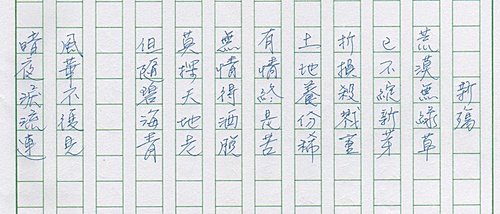 新殤
荒漠無綠草
已不綻新芽
折損殺戮重
土地養份稀
有情終是苦
無情得洒脫
莫探天地老
但隨碧海青
風華不復見
晴夜淚流連